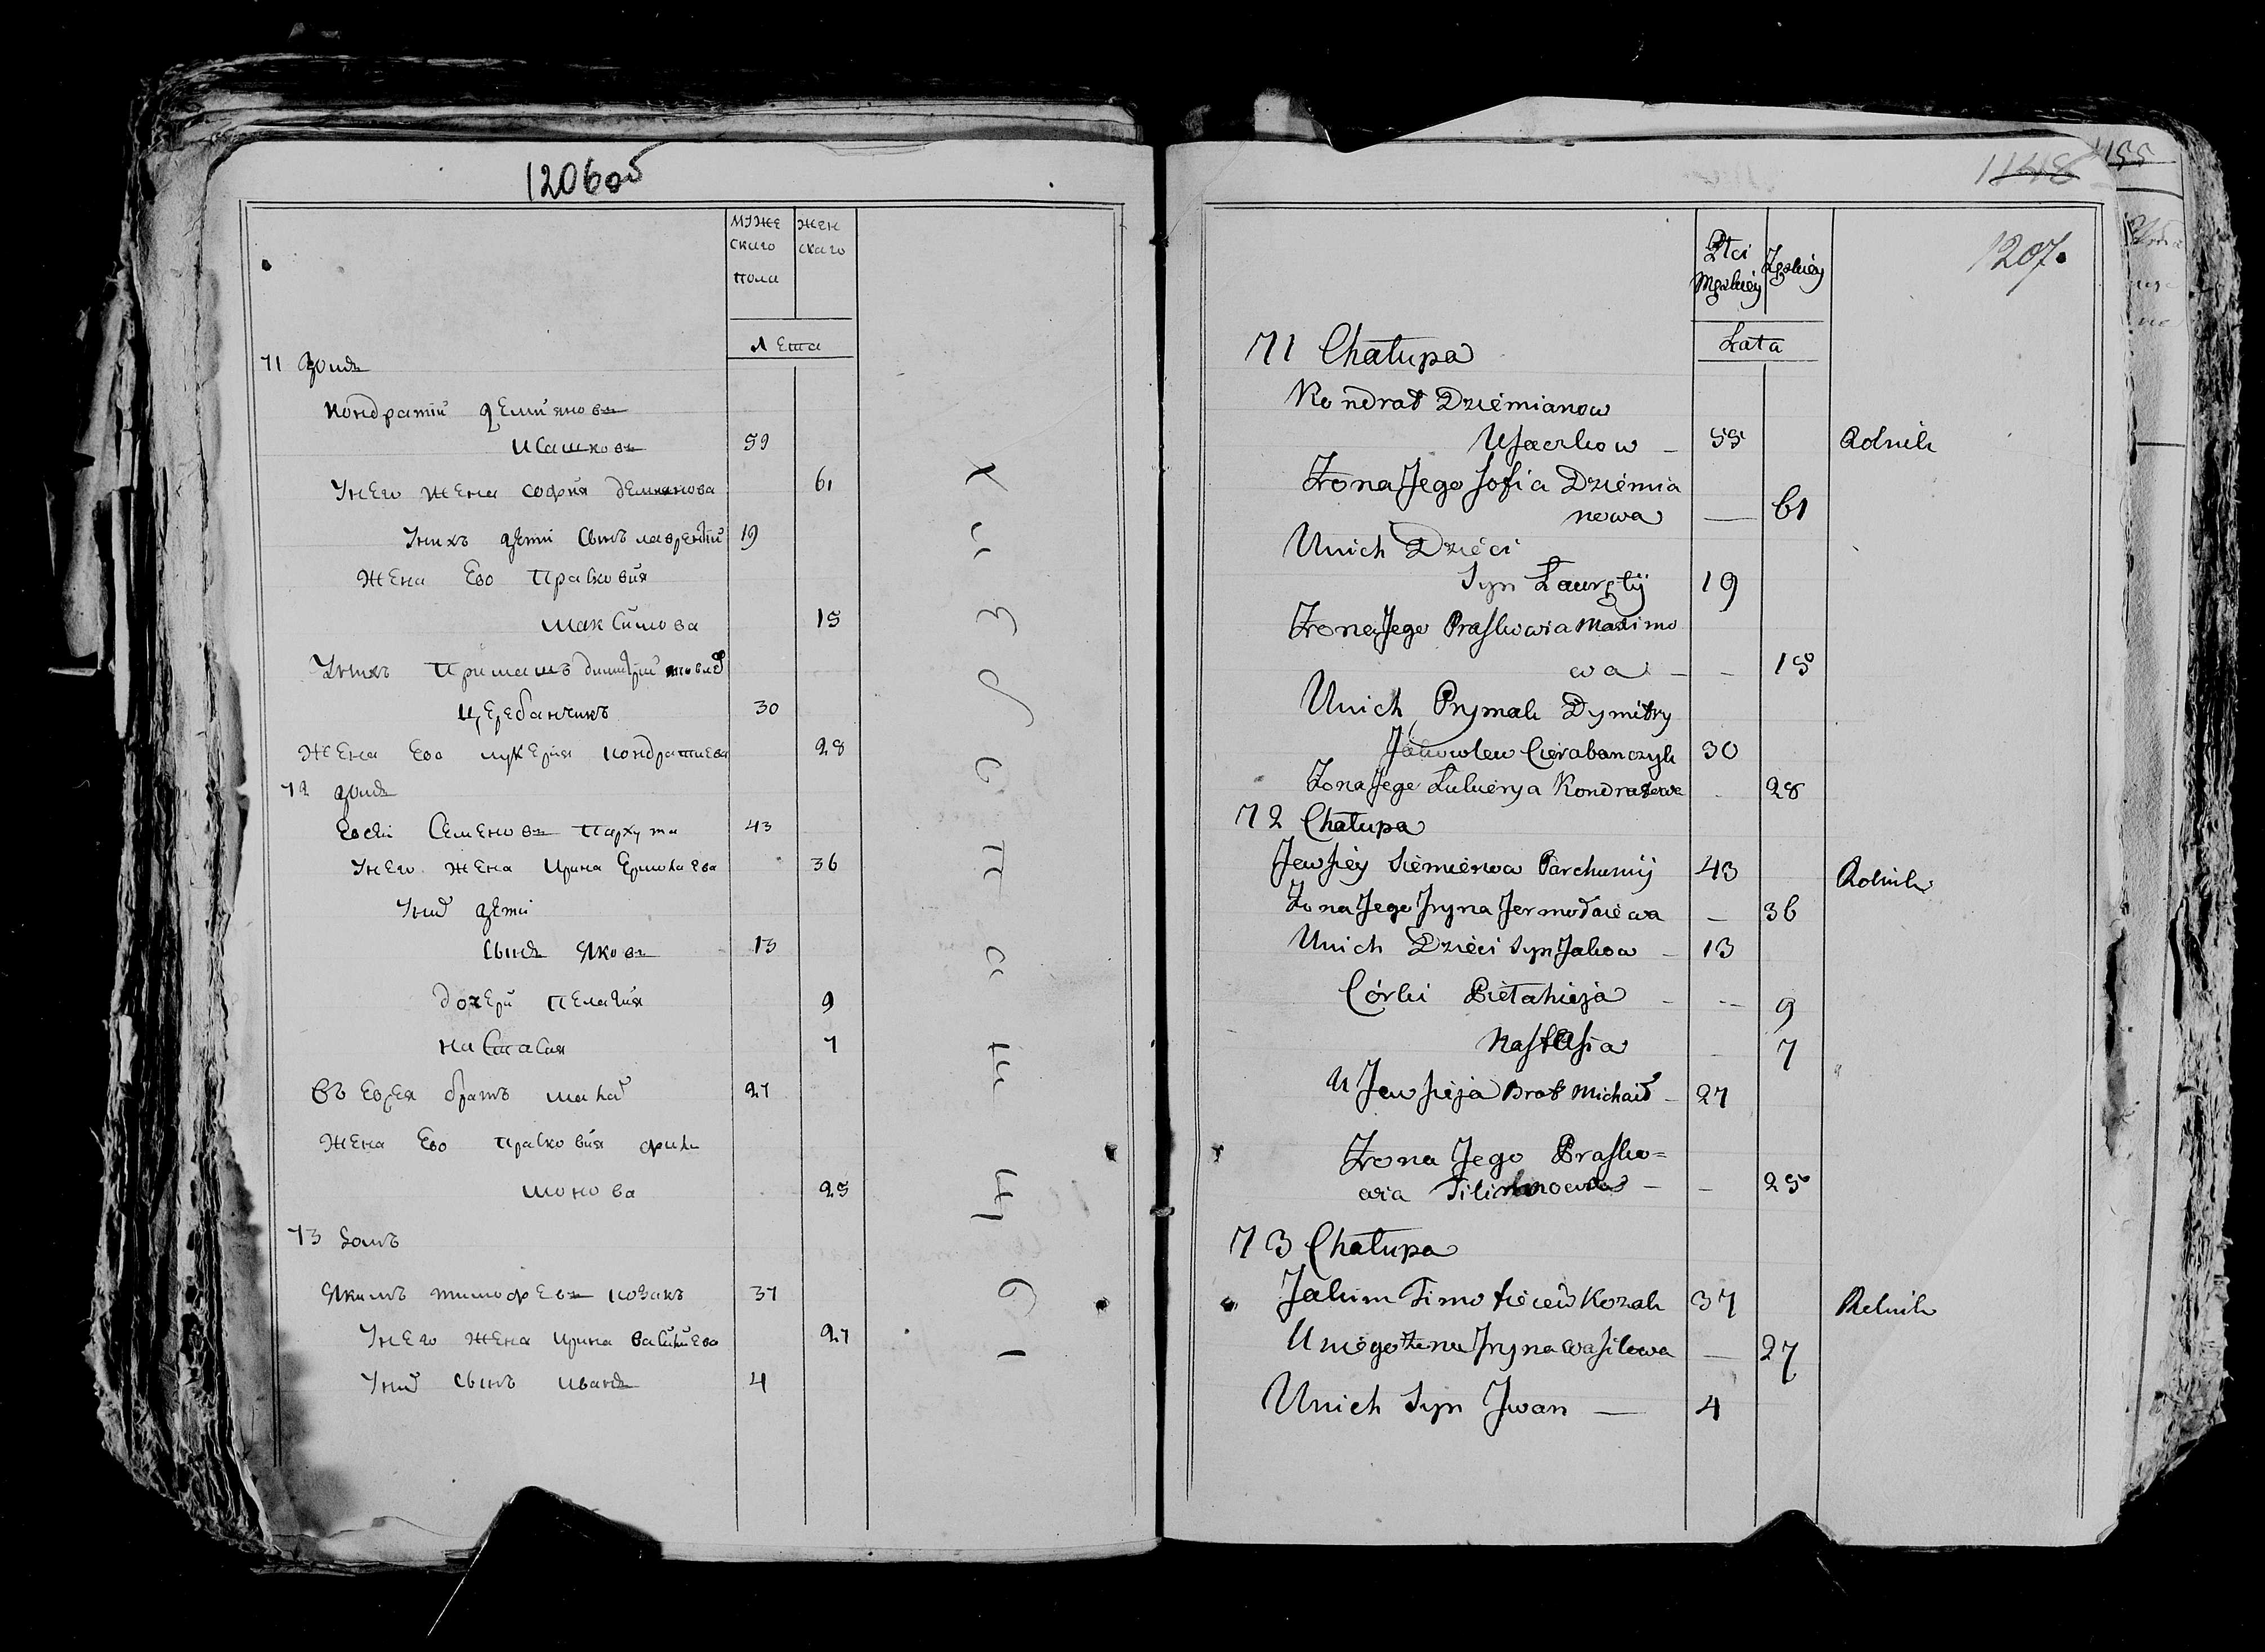 1206об
МУЖЕ
СКАГО
ПОЛА
ЖЕН
СКАГО
ЛЕТА
71 Домъ
Кондратий Демияновъ
Исашковъ 59
У него жена София Демиянова 61
У нихъ дети Сынъ лаврентий 19
Жена Ево Прасковия
Максимова 15
У нихъ Примакъ димитрий
Церебанчикъ 30
Жена Ево лукерия Кондратиева 28
72 Домъ
Евсей Семеновъ Пархута 43
У него жена Ирина Ермолаева 36
У них дети
Сынъ Яковъ 13
дочери Пелагия 9
настасия 7
брать 27
Жена Ево Прасковия фили
монова 25
73 Домъ
Якимъ тимофеевъ козакъ 37
У него жена Ирина василиева 27
У них сынъ Иванъ 4
1148
1155
1207.
Płci
Męzkiéy
Zęzkiéy
Lata
71 Chałupa
Kondrat Dziémianow
Usaczkow – 55 Rolnik
Żona Jego Sofia Dziémia
nowa — 61
U nich Dziéci
Syn Ławrętij 19
Żona Jego Praskowia Maximo
wa – – 15
U nich Prymak Dymitry
Jakowlew Cierabanczyk 30
Żona Jego Łukiérya Kondratewa 28
72 Chałupa
Jewsiéy Siémiénowa Parchumij 43 Rolnik
Żona Jego Jryna Jermołaiéwa – 36
U nich Dziéci Syn Jakow – 13
Córki Piełahieja – -- 9
Nastasia – 7
U Jewsieja Brat Michaił – 27
Żona Jego Prasko=
wia Filimonowa – – 25
73 Chałupa
Jakim Timotiéiéw Kozak 37 Rolnik
U niégo żena Jryna Wasilewa — 27
U nich Syn Jwan — 4